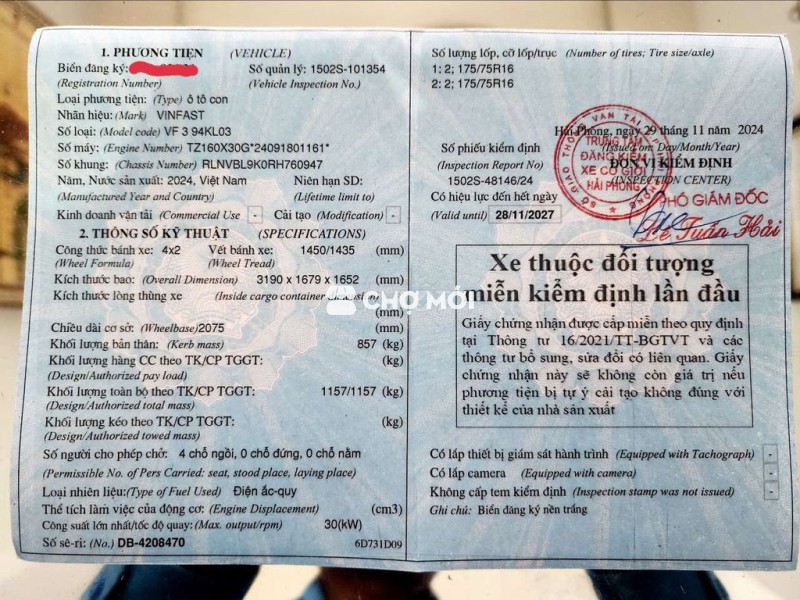 1. PHƯƠNG TIỆN (VEHICLE)
Biển đăng ký:
Số quản lý: 1502S-101354
(Registration Number)
(Vehicle Inspection No.)
Loại phương tiện: (Type) ô tô con
Nhãn hiệu: (Mark) VINFAST
Số loại: (Model code) VF 3 94KL03
Số máy: (Engine Number) TZ160X30G*24091801161*
Số khung: (Chassis Number) RLNVBL9K0RH760947
Năm, Nước sản xuất: 2024, Việt Nam
Niên hạn SD:
(Manufactured Year and Country)
(Lifetime limit to)
Kinh doanh vận tải (Commercial Use) -
Cải tạo (Modification) -
2. THÔNG SỐ KỸ THUẬT (SPECIFICATIONS)
Công thức bánh xe: 4x2
Vết bánh xe: 1450/1435 (mm)
(Wheel Formula)
(Wheel Tread)
Kích thước bao: (Overall Dimension) 3190 x 1679 x 1652 (mm)
Kích thước lòng thùng xe (Inside cargo container dimension)
(mm)
Chiều dài cơ sở: (Wheelbase) 2075 (mm)
Khối lượng bản thân: (Kerb mass) 857 (kg)
Khối lượng hàng CC theo TK/CP TGGT: (kg)
(Design/Authorized pay load)
Khối lượng toàn bộ theo TK/CP TGGT: 1157/1157 (kg)
(Design/Authorized total mass)
Khối lượng kéo theo TK/CP TGGT: (kg)
(Design/Authorized towed mass)
Số người cho phép chở: 4 chỗ ngồi, 0 chỗ đứng, 0 chỗ nằm
(Permissible No. of Pers Carried: seat, stood place, laying place)
Loại nhiên liệu: (Type of Fuel Used) Điện ắc-quy
Thể tích làm việc của động cơ: (Engine Displacement) (cm3)
Công suất lớn nhất/tốc độ quay: (Max. output/rpm) 30(kW)
Số sê-ri: (No.) DB-4208470
6D731D09
Số lượng lốp, cỡ lốp/trục (Number of tires; Tire size/axle)
1: 2; 175/75R16
2: 2; 175/75R16
Hải Phòng, ngày 29 tháng 11 năm 2024
Số phiếu kiểm định
(Issued on: Day/Month/Year)
(Inspection Report No)
ĐƠN VỊ KIỂM ĐỊNH
1502S-48146/24
(INSPECTION CENTER)
Có hiệu lực đến hết ngày
PHÓ GIÁM ĐỐC
(Valid until) 28/11/2027
Lê Tuấn Hải
TRUNG TÂM
ĐĂNG KIỂM
XE CƠ GIỚI
HẢI PHÒNG
Xe thuộc đối tượng
miễn kiểm định lần đầu
Giấy chứng nhận được cấp miễn theo quy định
tại Thông tư 16/2021/TT-BGTVT và các
thông tư bổ sung, sửa đổi có liên quan. Giấy
chứng nhận này sẽ không còn giá trị nếu
phương tiện bị tự ý cải tạo không đúng với
thiết kế của nhà sản xuất
Có lắp thiết bị giám sát hành trình (Equipped with Tachograph) -
Có lắp camera (Equipped with camera) -
Không cấp tem kiểm định (Inspection stamp was not issued) -
Ghi chú: Biển đăng ký nền trắng
CHỢ MỚI